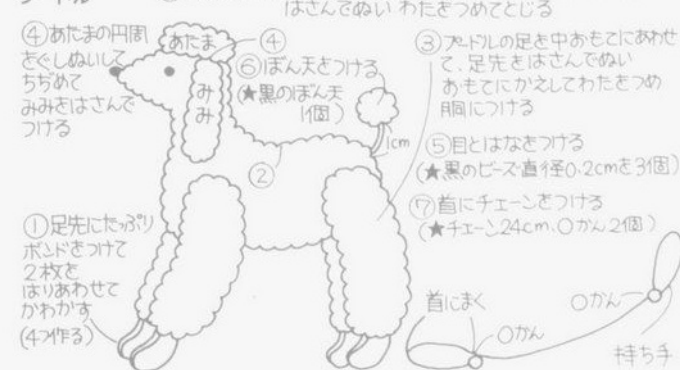 はさんでぬい わたをつめてとじる
④あたまの円周
をぐしぬいして
ちぢめて
みみをはさんで
つける
あたま
④
みみ
⑥ぼん天をつける
(★黒のぼん天
1個)
1cm
②
③プードルの足を中おもてにあわせ
て、足先をはさんでぬい
おもてにかえしてわたをつめ
胴につける
⑤目とはなをつける
(★黒のビーズ直径0.2cmを3個)
⑦首にチェーンをつける
(★チェーン24cm、○かん2個)
①足先にたっぷり
ボンドをつけて
2枚を
はりあわせて
かわかす
(4つ作る)
首にまく
○かん
○かん
持ち手